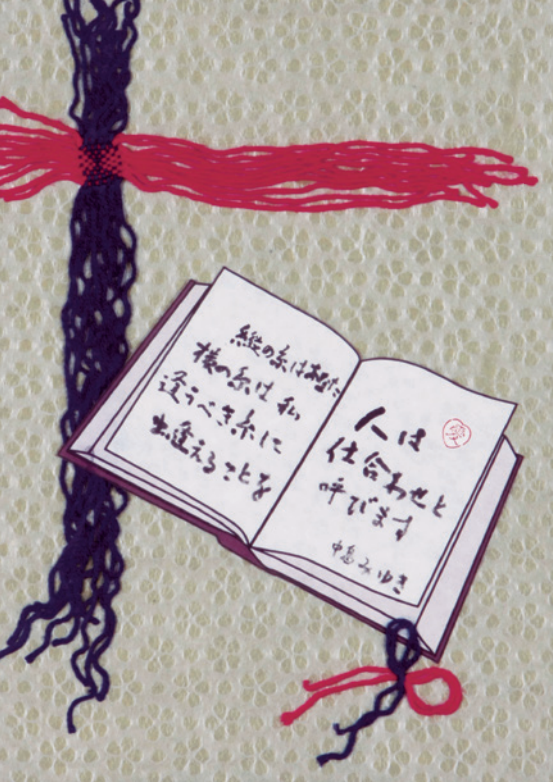 縦の糸はあなた
横の糸は私
逢うべき糸に
出逢えることを
人は
仕合わせと
呼びます
中島みゆき